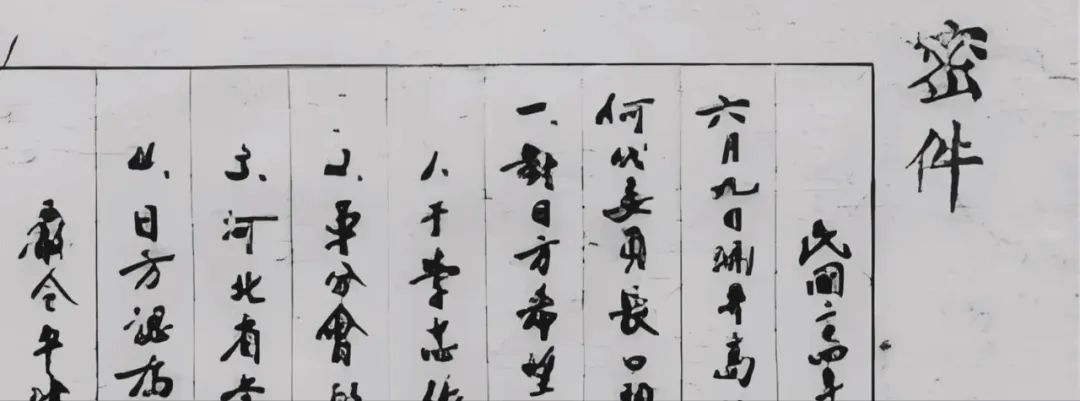 密件
民国二四年
六月九日酒井高
何代委員長口
一、對日方希望
1、于孝忠
2、軍分會
3、河北省
4、日方認為
嚴令平津